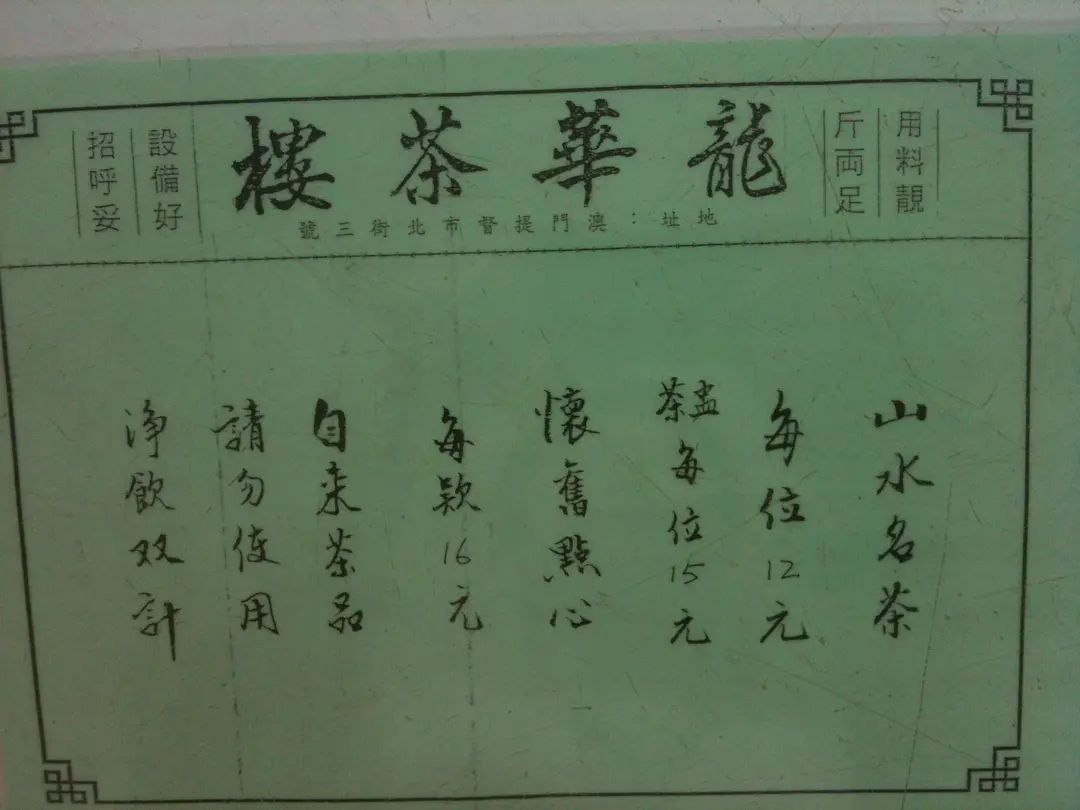 龍華茶樓
用料靚
斤両足
設備好
招呼妥
地址：澳門提督市北街三號
山水名茶
每位12元
茶盅每位15元
懷舊點心
每款16元
自来茶品
請勿使用
净飲双計